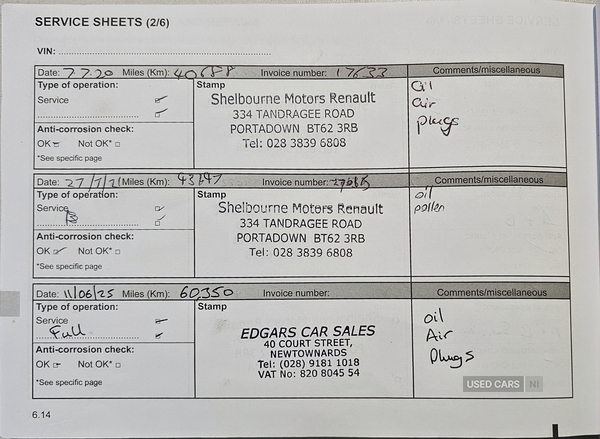 SERVICE SHEETS (2/6)
VIN:
Date: 7 7 20 Miles (Km): Invoice number: 17633 Comments/miscellaneous
Type of operation: Stamp Oil
Service Shelbourne Motors Renault air
334 TANDRAGEE ROAD plugs
Anti-corrosion check: PORTADOWN BT62 3RB
OK Not OK* Tel: 028 3839 6808
*See specific page
Date: 27/7/21 Miles (Km): Invoice number: Comments/miscellaneous
Type of operation: Stamp oil
Service Shelbourne Motors Renault pollen
B 334 TANDRAGEE ROAD
Anti-corrosion check: PORTADOWN BT62 3RB
OK Not OK* Tel: 028 3839 6808
*See specific page
Date: 11/06/25 Miles (Km): 60350 Invoice number: Comments/miscellaneous
Type of operation: Stamp oil
Service EDGARS CAR SALES Air
Full 40 COURT STREET, Plugs
Anti-corrosion check: NEWTOWNARDS
OK Not OK* Tel: (028) 9181 1018
*See specific page VAT No: 820 8045 54
USED CARS NI
6.14